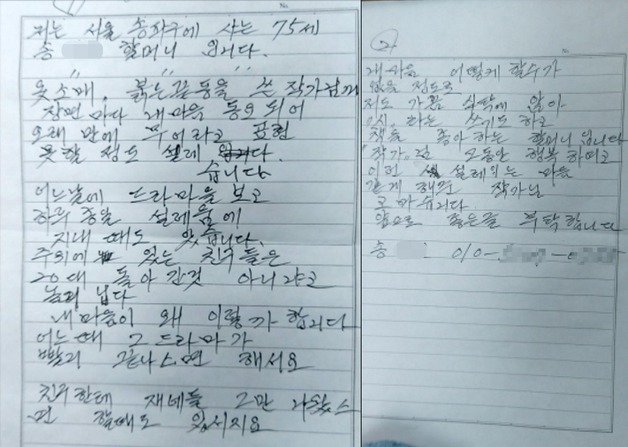 저는 서울 송파구에 사는 75세
송 할머니 입니다.
옷소매, 붉은끝동을 쓴 작가님께
장면마다 내마음 동요 되어
오래만에 무어라고 표현
못할 정도 설레
습니다
어느날에 드라마을 보고
하루 종일 설레움에
지내 때도 있습니다.
주위에 있는 친구들은
20대 돌아 간것 아니냐고
놀려 넙다
내마음이 왜 이렇가 합니다
어느때 그 드라마가
빨리 끝나스면 해서요
친구한테 재네들 그만 나왔스
면 할때도 있서지요
2
내마음 어떻게 할수가
없을 정도로
저도 가끔 식탁에 앉아
시, 라는 쓰기도 하고
책을 좋아 하는 할머니 입니다
작가, 님 오동안 행복 하며고
이런 설레이는 마음
갖게 해준 작가님
고마습니다
앞으로 좋은글 부탁 합니다
송 : 010-